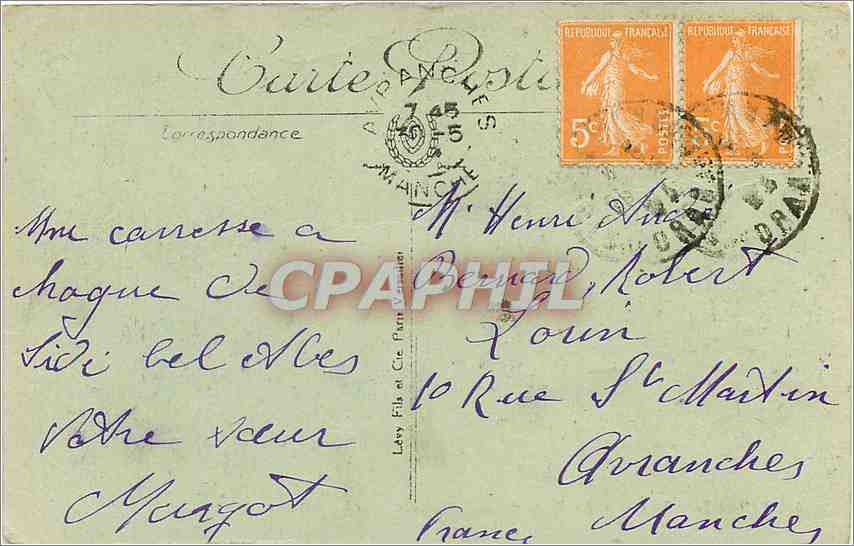 Carte Postale
Correspondance
RÉPUBLIQUE FRANÇAISE
5c POSTES
RÉPUBLIQUE FRANÇAISE
5c POSTES
AVRANCHES
7 45
30 -5
MANCHE
ORAN
ORAN
CPAPHIL
Une carresse a
chaque de
Sidi bel Abes
Votre sœur
Margot
Lévy Fils et Cie Paris Versailles
Mr Henri André
Bernard, Robert
Lorin
10 Rue St Martin
Avranches
Manches
France